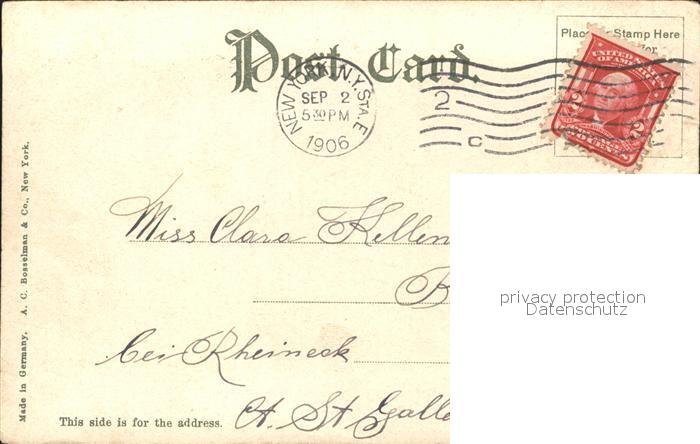 Post Card.
Place Stamp Here
NEW YORK, N.Y. STA. E
SEP 2
5 30 PM
1906
2
C
UNITED STATES
OF AMERICA
2 2
TWO CENTS
Miss Clara Kellen
B
bei Rheineck
Ct. St Galle
This side is for the address.
Made in Germany. A. C. Bosselman & Co., New York.
privacy protection
Datenschutz